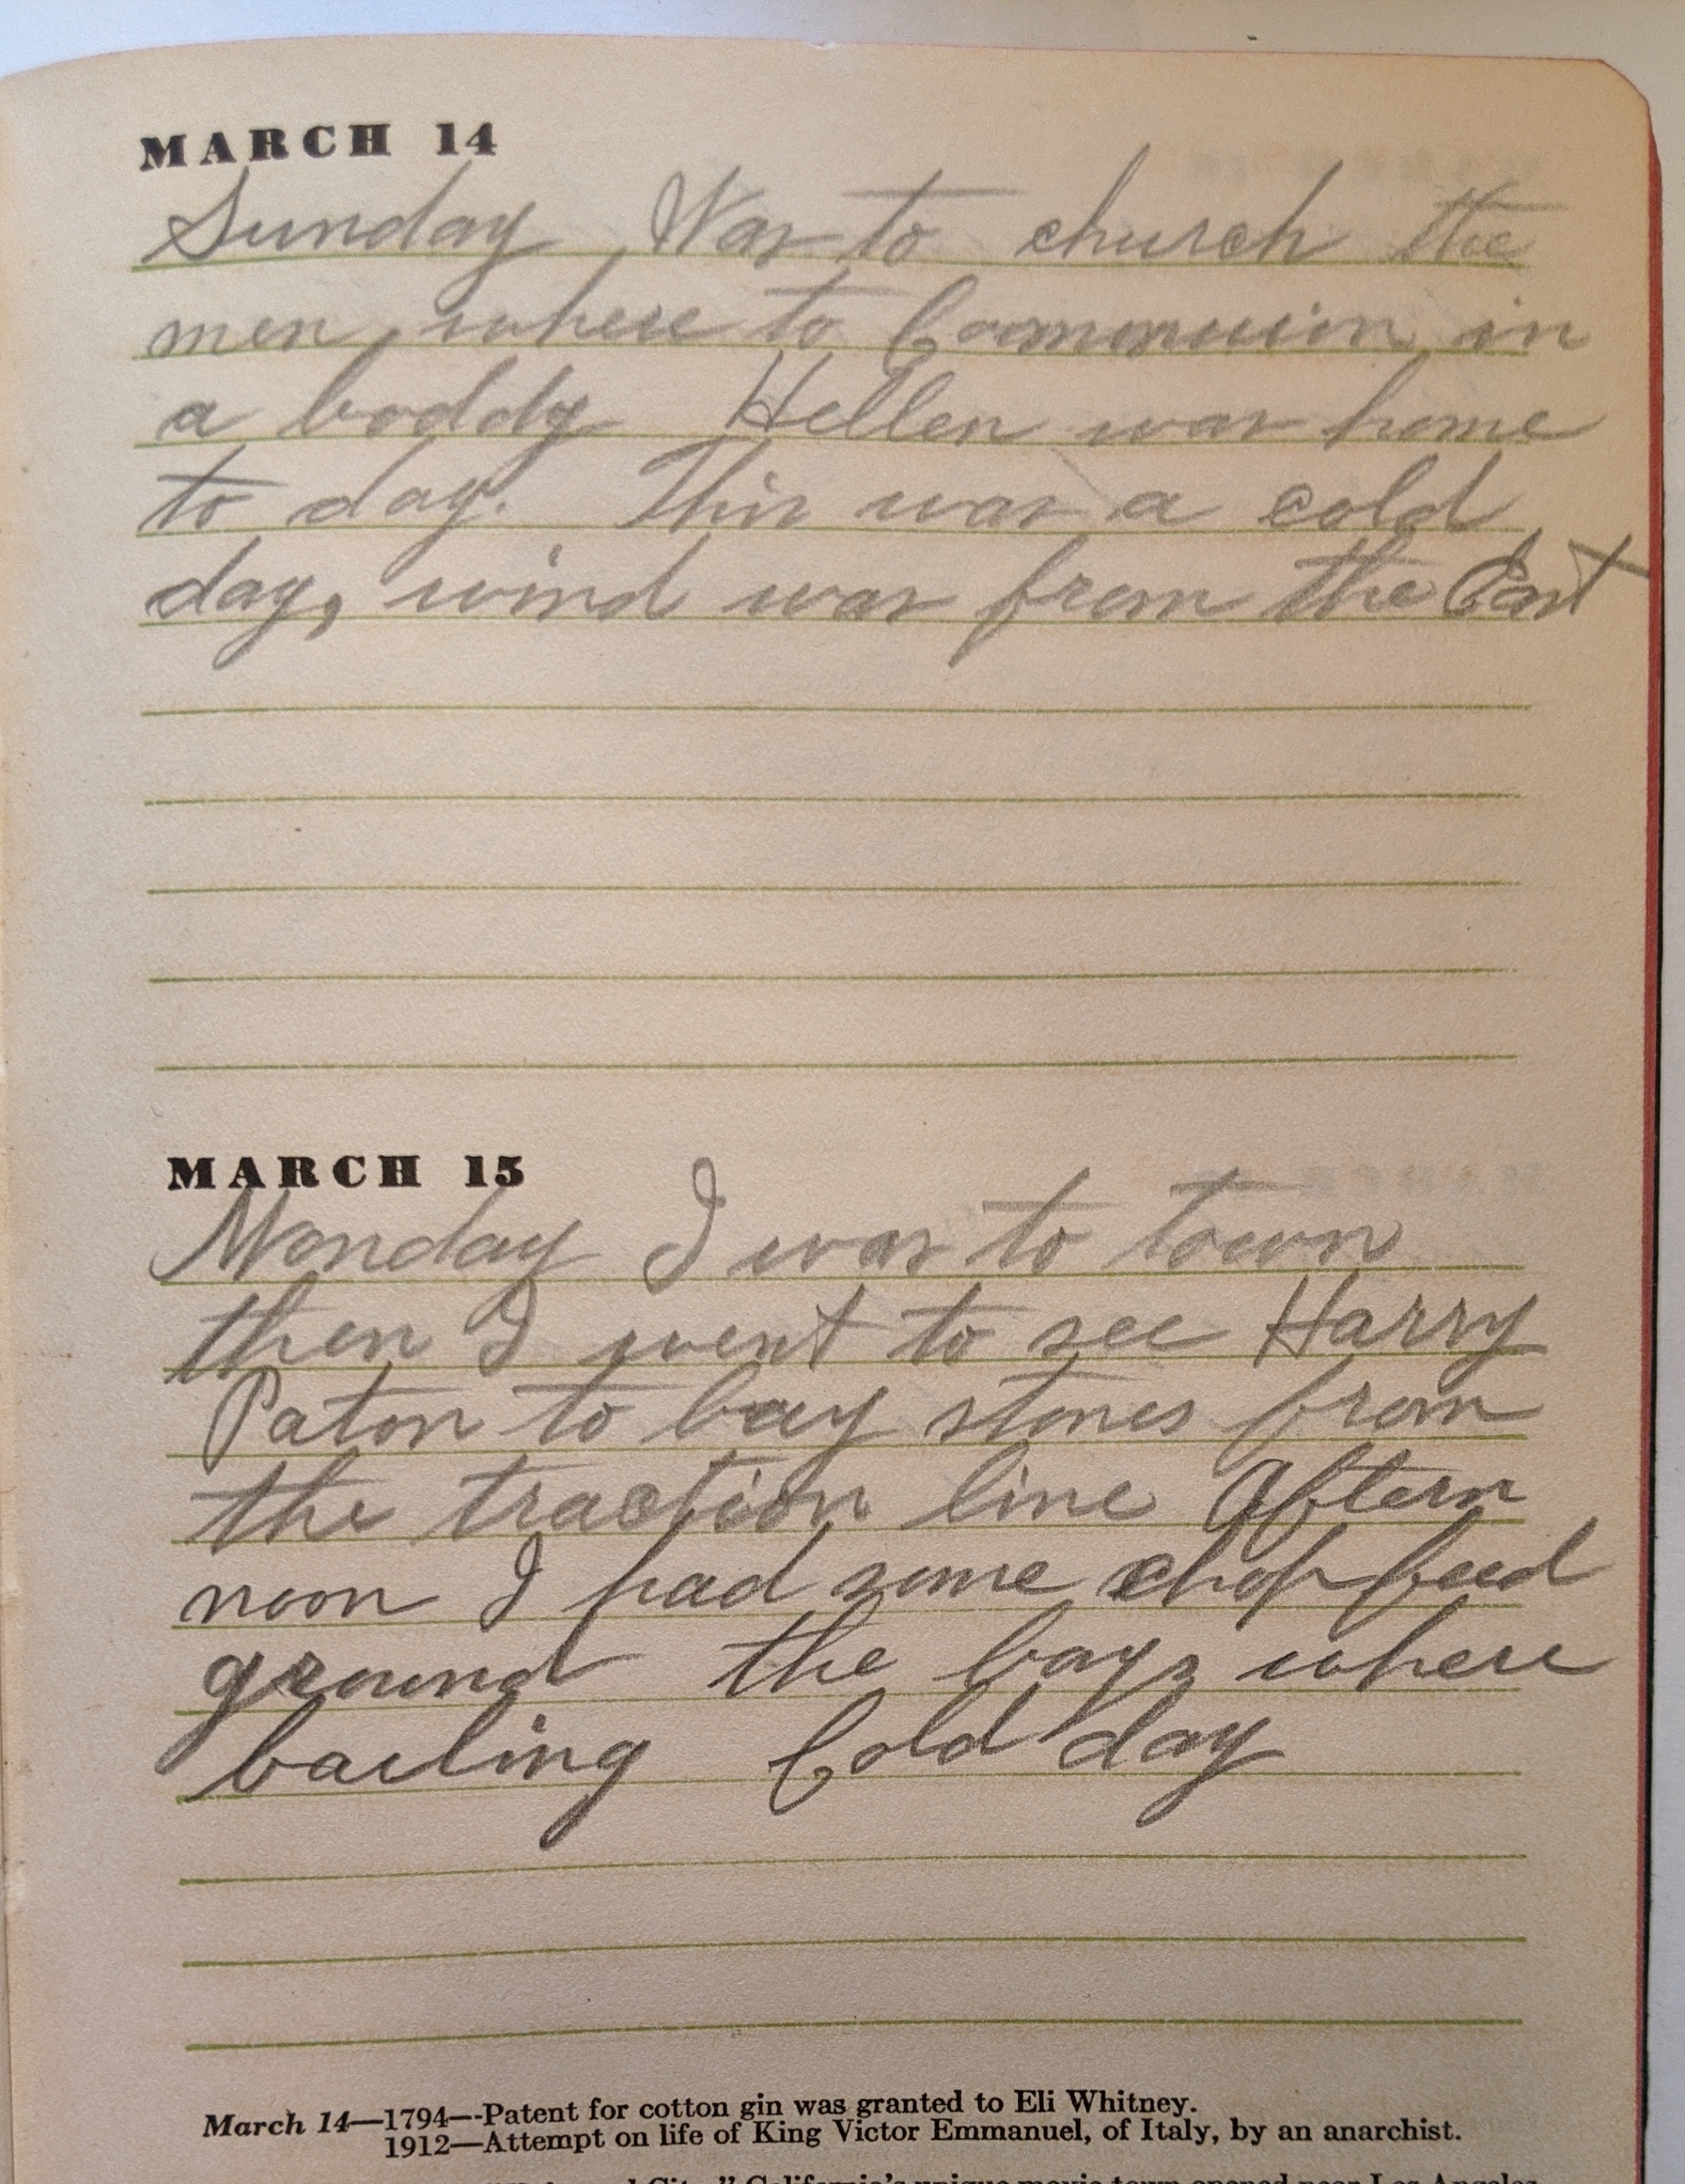 MARCH 14
Sunday Was to church the
men where to Communion in
a boddy Hellen was home
to day. This was a cold
day, wind was from the East
MARCH 15
Monday I was to town
then I went to see Harry
Paton to buy stones from
the traction line Aftern
noon I had some chop feed
ground the boys where
bailing Cold day
March 14—1794—Patent for cotton gin was granted to Eli Whitney.
1912—Attempt on life of King Victor Emmanuel, of Italy, by an anarchist.
City," California's unique movie town opened near Los Angeles